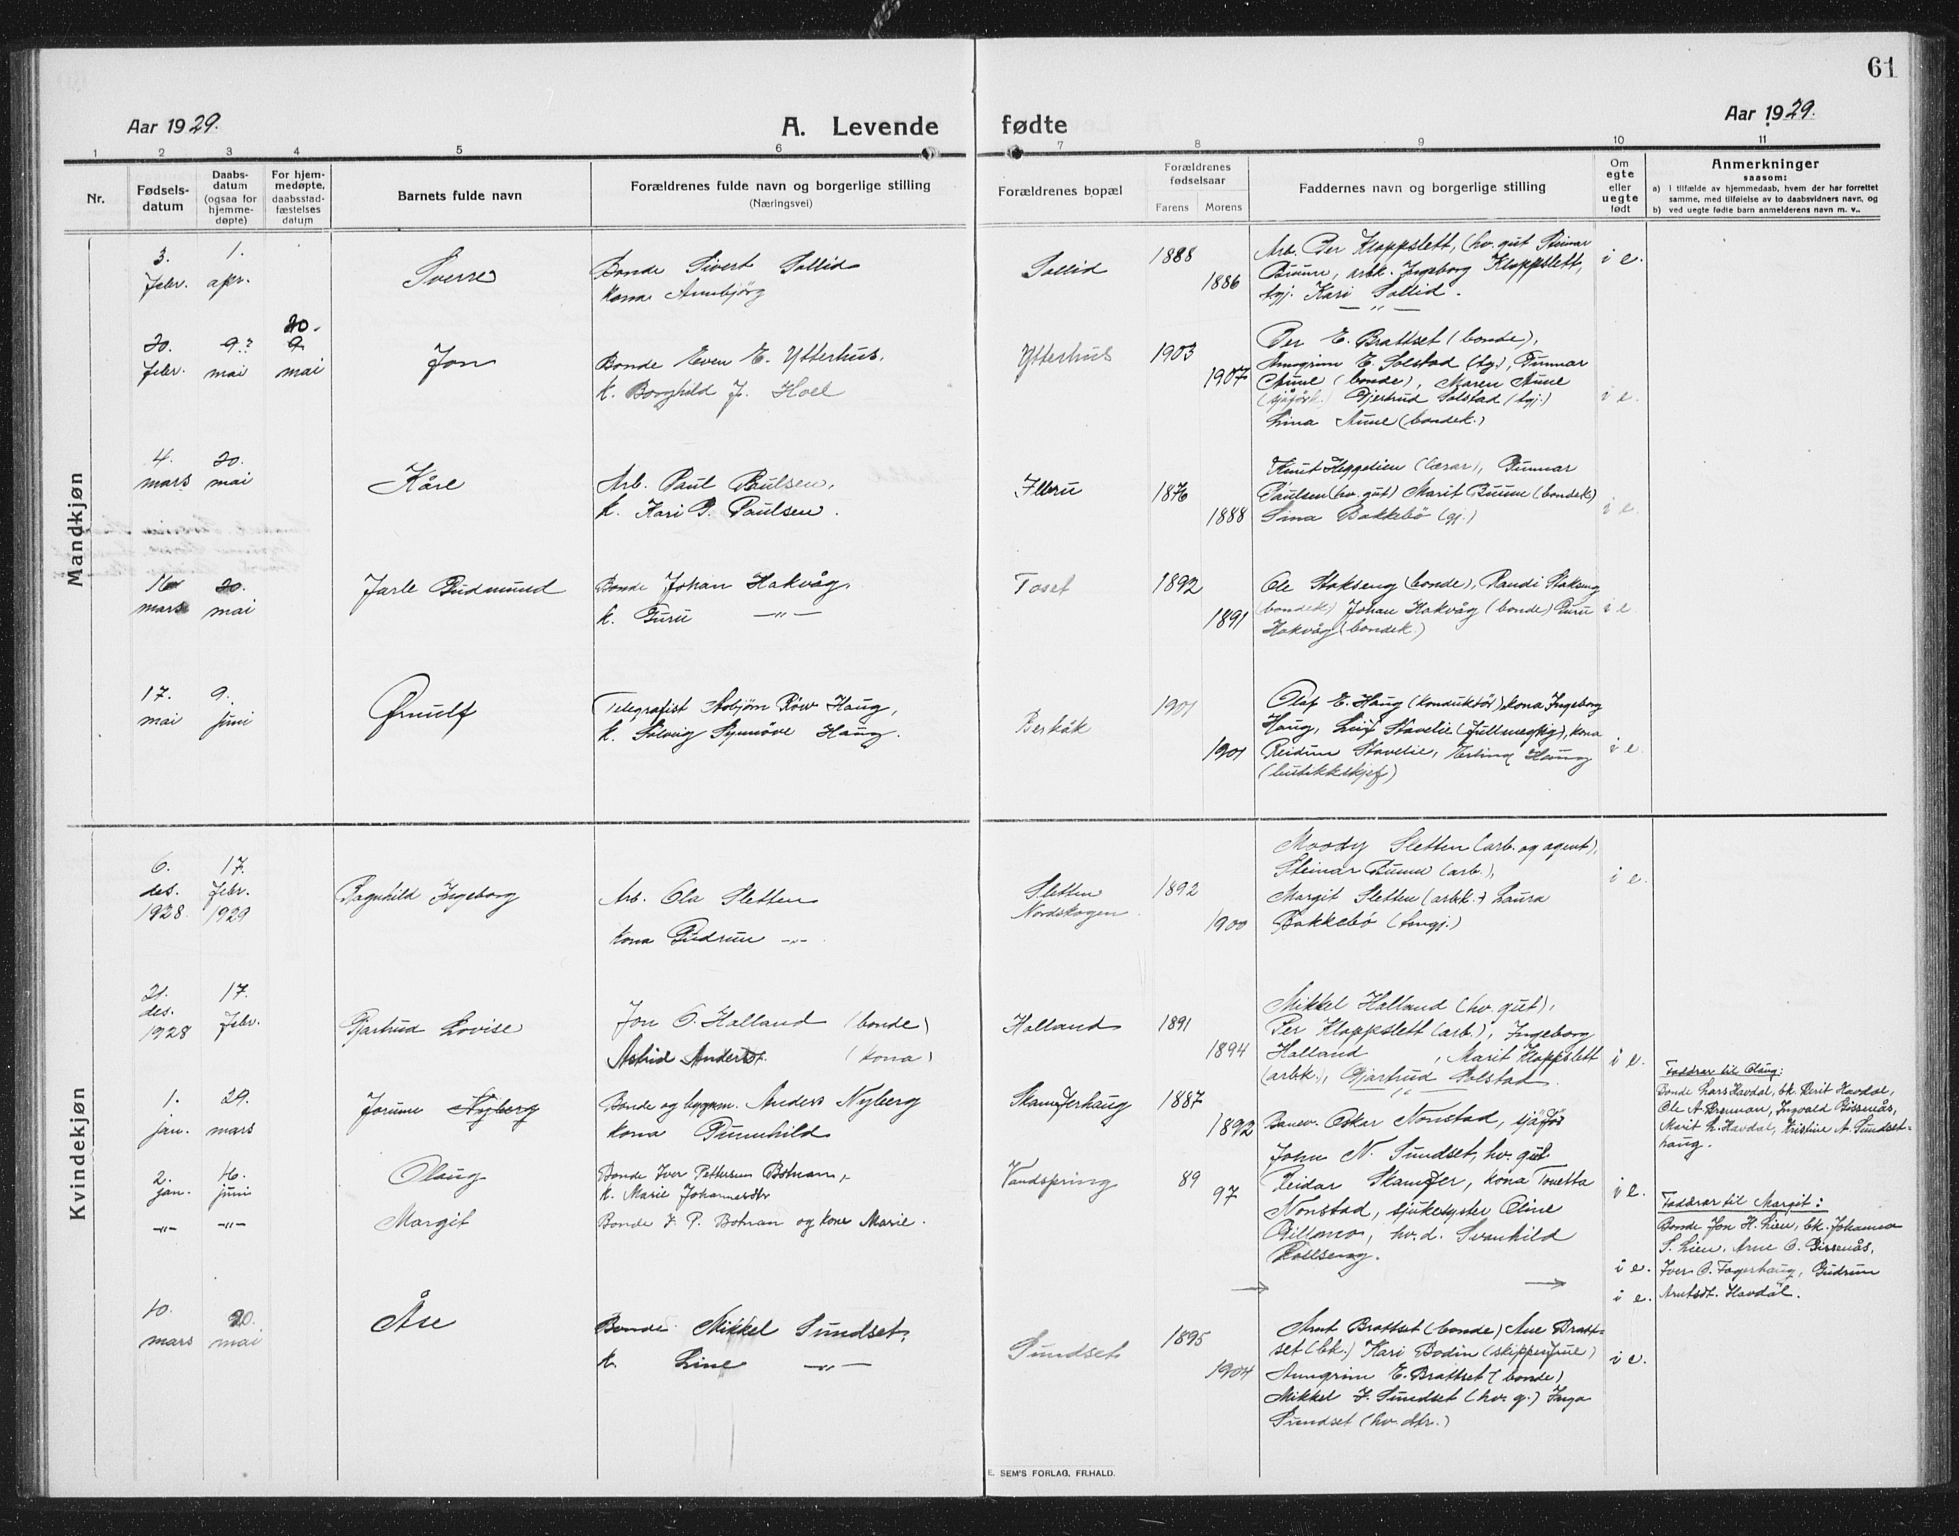 61
Aar 1929.
A. Levende fødte
Aar 1929.
1 2 3 4 5 6 7 8 9 10 11
Nr.
Fødsels-
datum
Daabs-
datum
(ogsaa for
hjemme-
døpte)
For hjem-
medøpte,
daabsstad-
fæstelses
datum
Barnets fulde navn
Forældrenes fulde navn og borgerlige stilling
(Næringsvei)
Forældrenes bopæl
Forældrenes
fødselsaar
Farens Morens
Faddernes navn og borgerlige stilling
Om
egte
eller
uegte
født
Anmerkninger
saasom:
a) i tilfælde av hjemmedaab, hvem der har forrettet
samme, med tilføielse av to daabsvidners navn, og
b) ved uegte fødte barn anmelderens navn m. v..
Mandkjøn
3.
febr.
1.
apr.
Sverre
Bonde Sivert Sollid
kona Annbjörg
Sollid
1888
1886
Arb. Per Kloppslett, (hv. gut Steinar
Buum, arbk. Ingeborg Kloppslett,
tgj. Kari Sollid.
— " —
i e.
20.
febr.
9.
mai
20.
9
mai
Jon
Bonde Even E. Ytterhus.
k. Borghild J. Hoel
Ytterhus
1903
1907
Per E. Brattset (bonde),
Anngrim E. Solstad (tg), Gunnar
Aune (bonde), Maren Aune
Gjertrud Solstad (tgj.)
Lina Aune (bondek.)
i e.
4.
mars
20.
mai
Kåre
Arb. Paul Paulsen,
k. Kari P. Paulsen.
Ilbru
1876
1888
Knut Heggelien (lærar), Gunnar
Paulsen (hv. gut) Marit Buum (bondek)
Sina Bakkebö (gj.)
i e.
16
mars
20.
mai
Jarle Gudmund
Bonde Johan Hakvåg
k. Guru — " —
Toset
1892
1891
Ole Stokseng (bonde), Randi Stokseng
(bondek) Johan Hakvåg (bonde) Guru
Hakvåg (bondek.)
i e
17.
mai
9.
juni
Ørnulf
Telegrafist Asbjørn Röw Haug,
k. Solveig Synnöve Haug.
Berkåk
1901
1901
Olaf E. Haug (konduktör), kona Ingeborg
Haug, Leif Stavelie (fullmegtig), kona
Reidun Stavelie, Erling Haug
(butikkskjef)
i e.
Kvindekjøn
6.
des.
1928.
17.
febr.
1929
Ragnhild Ingeborg
Arb. Ola Sletten
kona Gudrun — " —
Sletten
Nordskogen.
1892
1900
Moody Sletten (arb. og agent),
Steinar Buum (arb.),
Margit Sletten (arbk.) Laura
Bakkebö (tengj.)
i e.
21.
des.
1928
17.
febr.
Gjartrud Lovise
Jon O. Halland (bonde)
Astrid Andersdt. (kona)
Halland
1891
1894
Mikkel Halland (hv. gut),
Per Kloppslett (arb.), Ingeborg
Halland , Marit Kloppslett
(arbk.), Gjartrud Solstad.
— " —
i e.
1.
jan.
29.
mars
Jorunn Nyberg
Bonde og bygnm. Anders Nyberg
kona Gunnhild
Skamferhaug
1887
1892
Banev. Oskar Nonstad, sjåför
John N. Sundset, hv. gut
Reidar Skamfer, kona Tonetta
Nonstad, sjukesyster Oline
hv. d. Svanhild
i e.
2.
jan.
16.
juni
Olaug
Bonde Iver Pettersen Botnan,
k. Marie Johannesdtr
Vandspring
89
97
i e.
— " —
— " —
Margit
Bonde I. P. Botnan og kona Marie.
i e.
Faddrar til Olaug:
Bonde Lars Havdal, bk. Berit Havdal,
Ole A. Breman, Ingvald Gissenås,
Marit L. Havdal, Kristine A. Sundset-
haug.
Faddrar til Margit:
Bonde Jon H. Lien, bk. Johanna
S. Lien, Arne O. Gissenås,
Iver O. Fagerhaug, Gudrun
Arntsdt. Havdål.
10.
mars
20.
mai
Åse
Bonde Mikkel Sundset,
k. Line — " —
Sundset
1895
1904
Arnt Brattset (bonde) Ane Bratt-
set (bk.) Kari Bodin (skipperfrue)
Anngrim E. Brattset (bonde)
Mikkel J. Sundset (hv. g.) Inga
Sundset (hv. dtr.)
i e.
E. SEM'S FORLAG, FR.HALD.